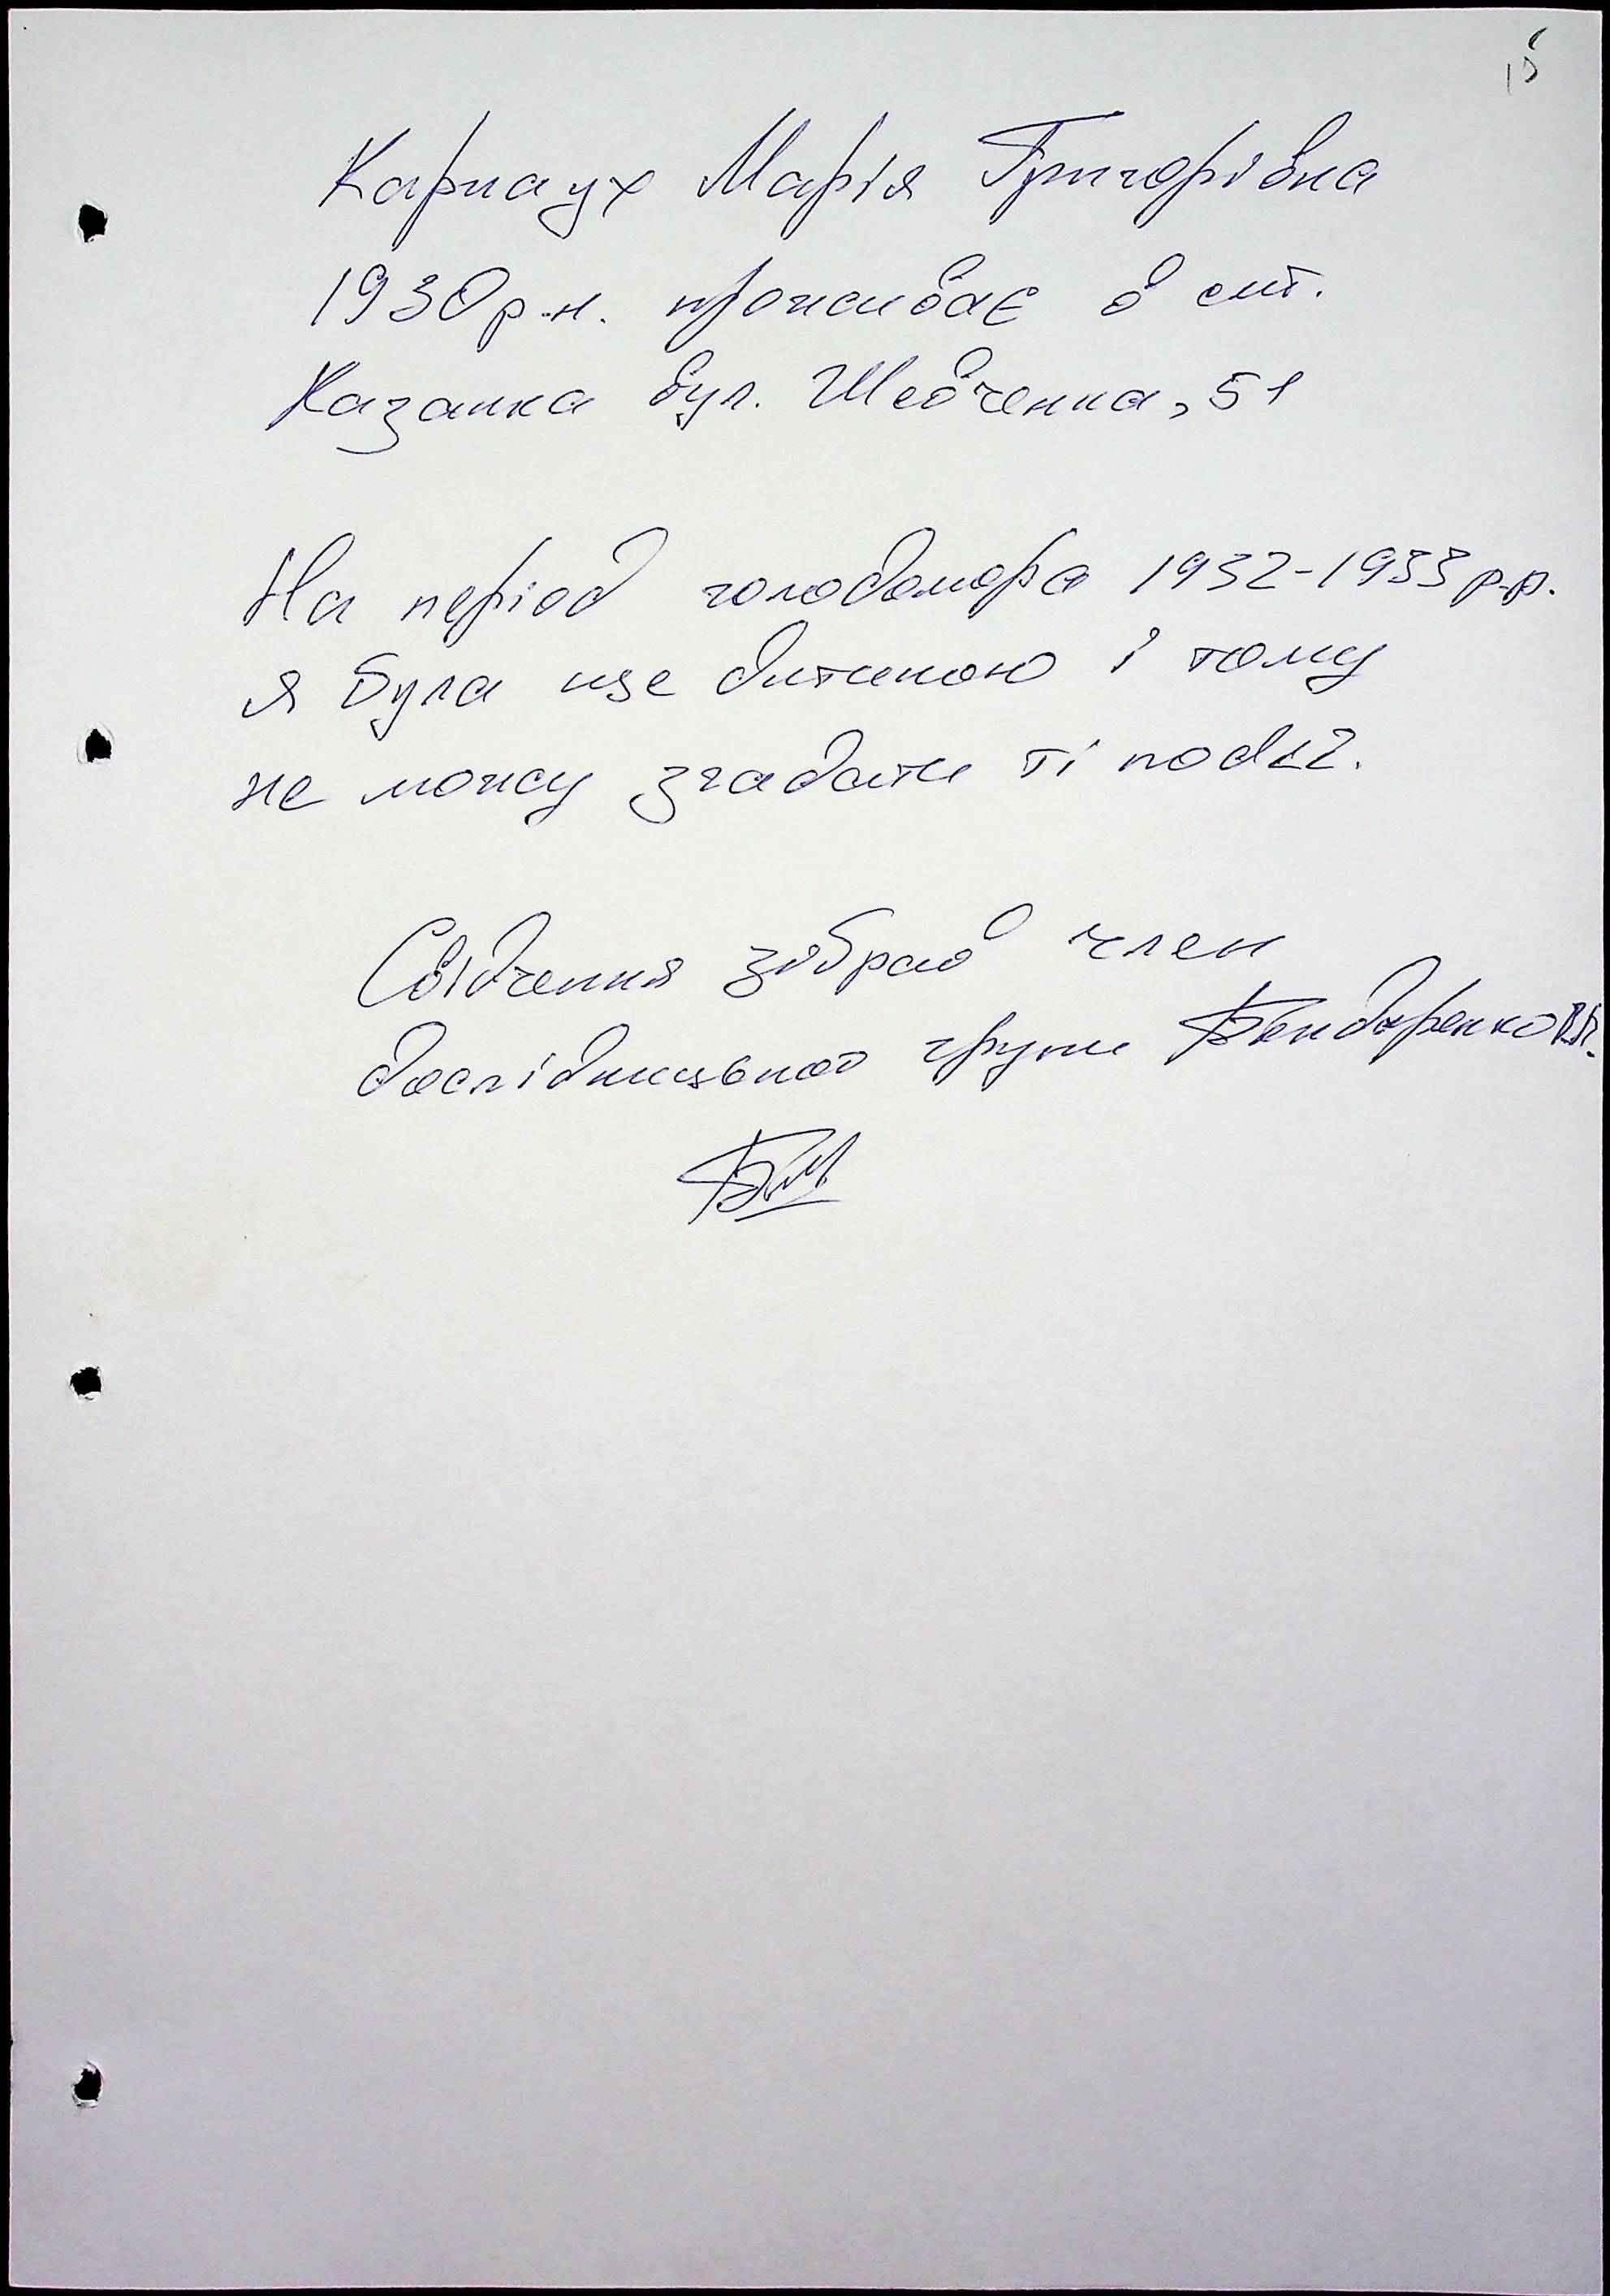 15
Карнаух Марія Григорівна
1930 р.н. проживає в смт.
Казанка вул. Шевченка, 51
На період голодомора 1932-1933 р.р.
я була ще дитиною і тому
не можу згадати ті події.
Свідчення зібрав член
дослідницької групи Бондаренко